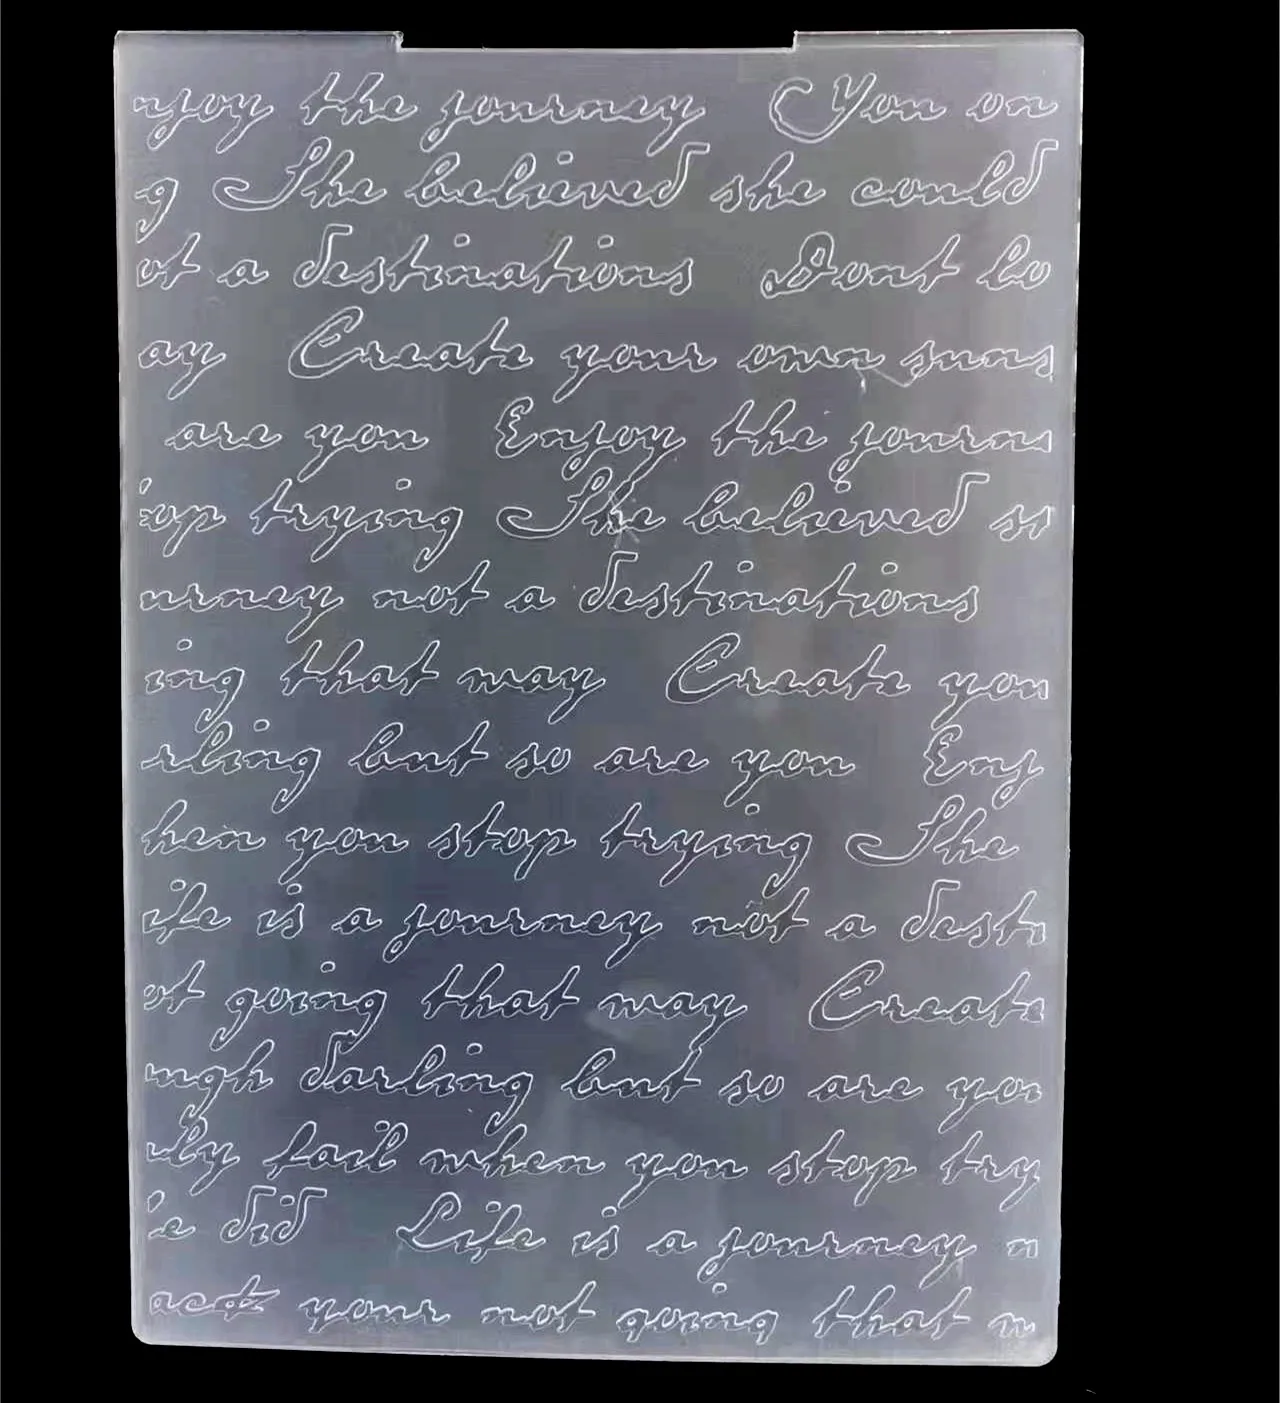 njoy the journey You on
g She believed she could
ot a destinations Dont lo
ay Create your own suns
are you Enjoy the journe
op trying She believed sh
urney not a destinations
ing that may Create you
rling but so are you Enj
hen you stop trying She
ife is a journey not a desti
ot going that may Create
ugh darling but so are you
ly fail when you stop try
e did Life is a journey n
back your not going that m